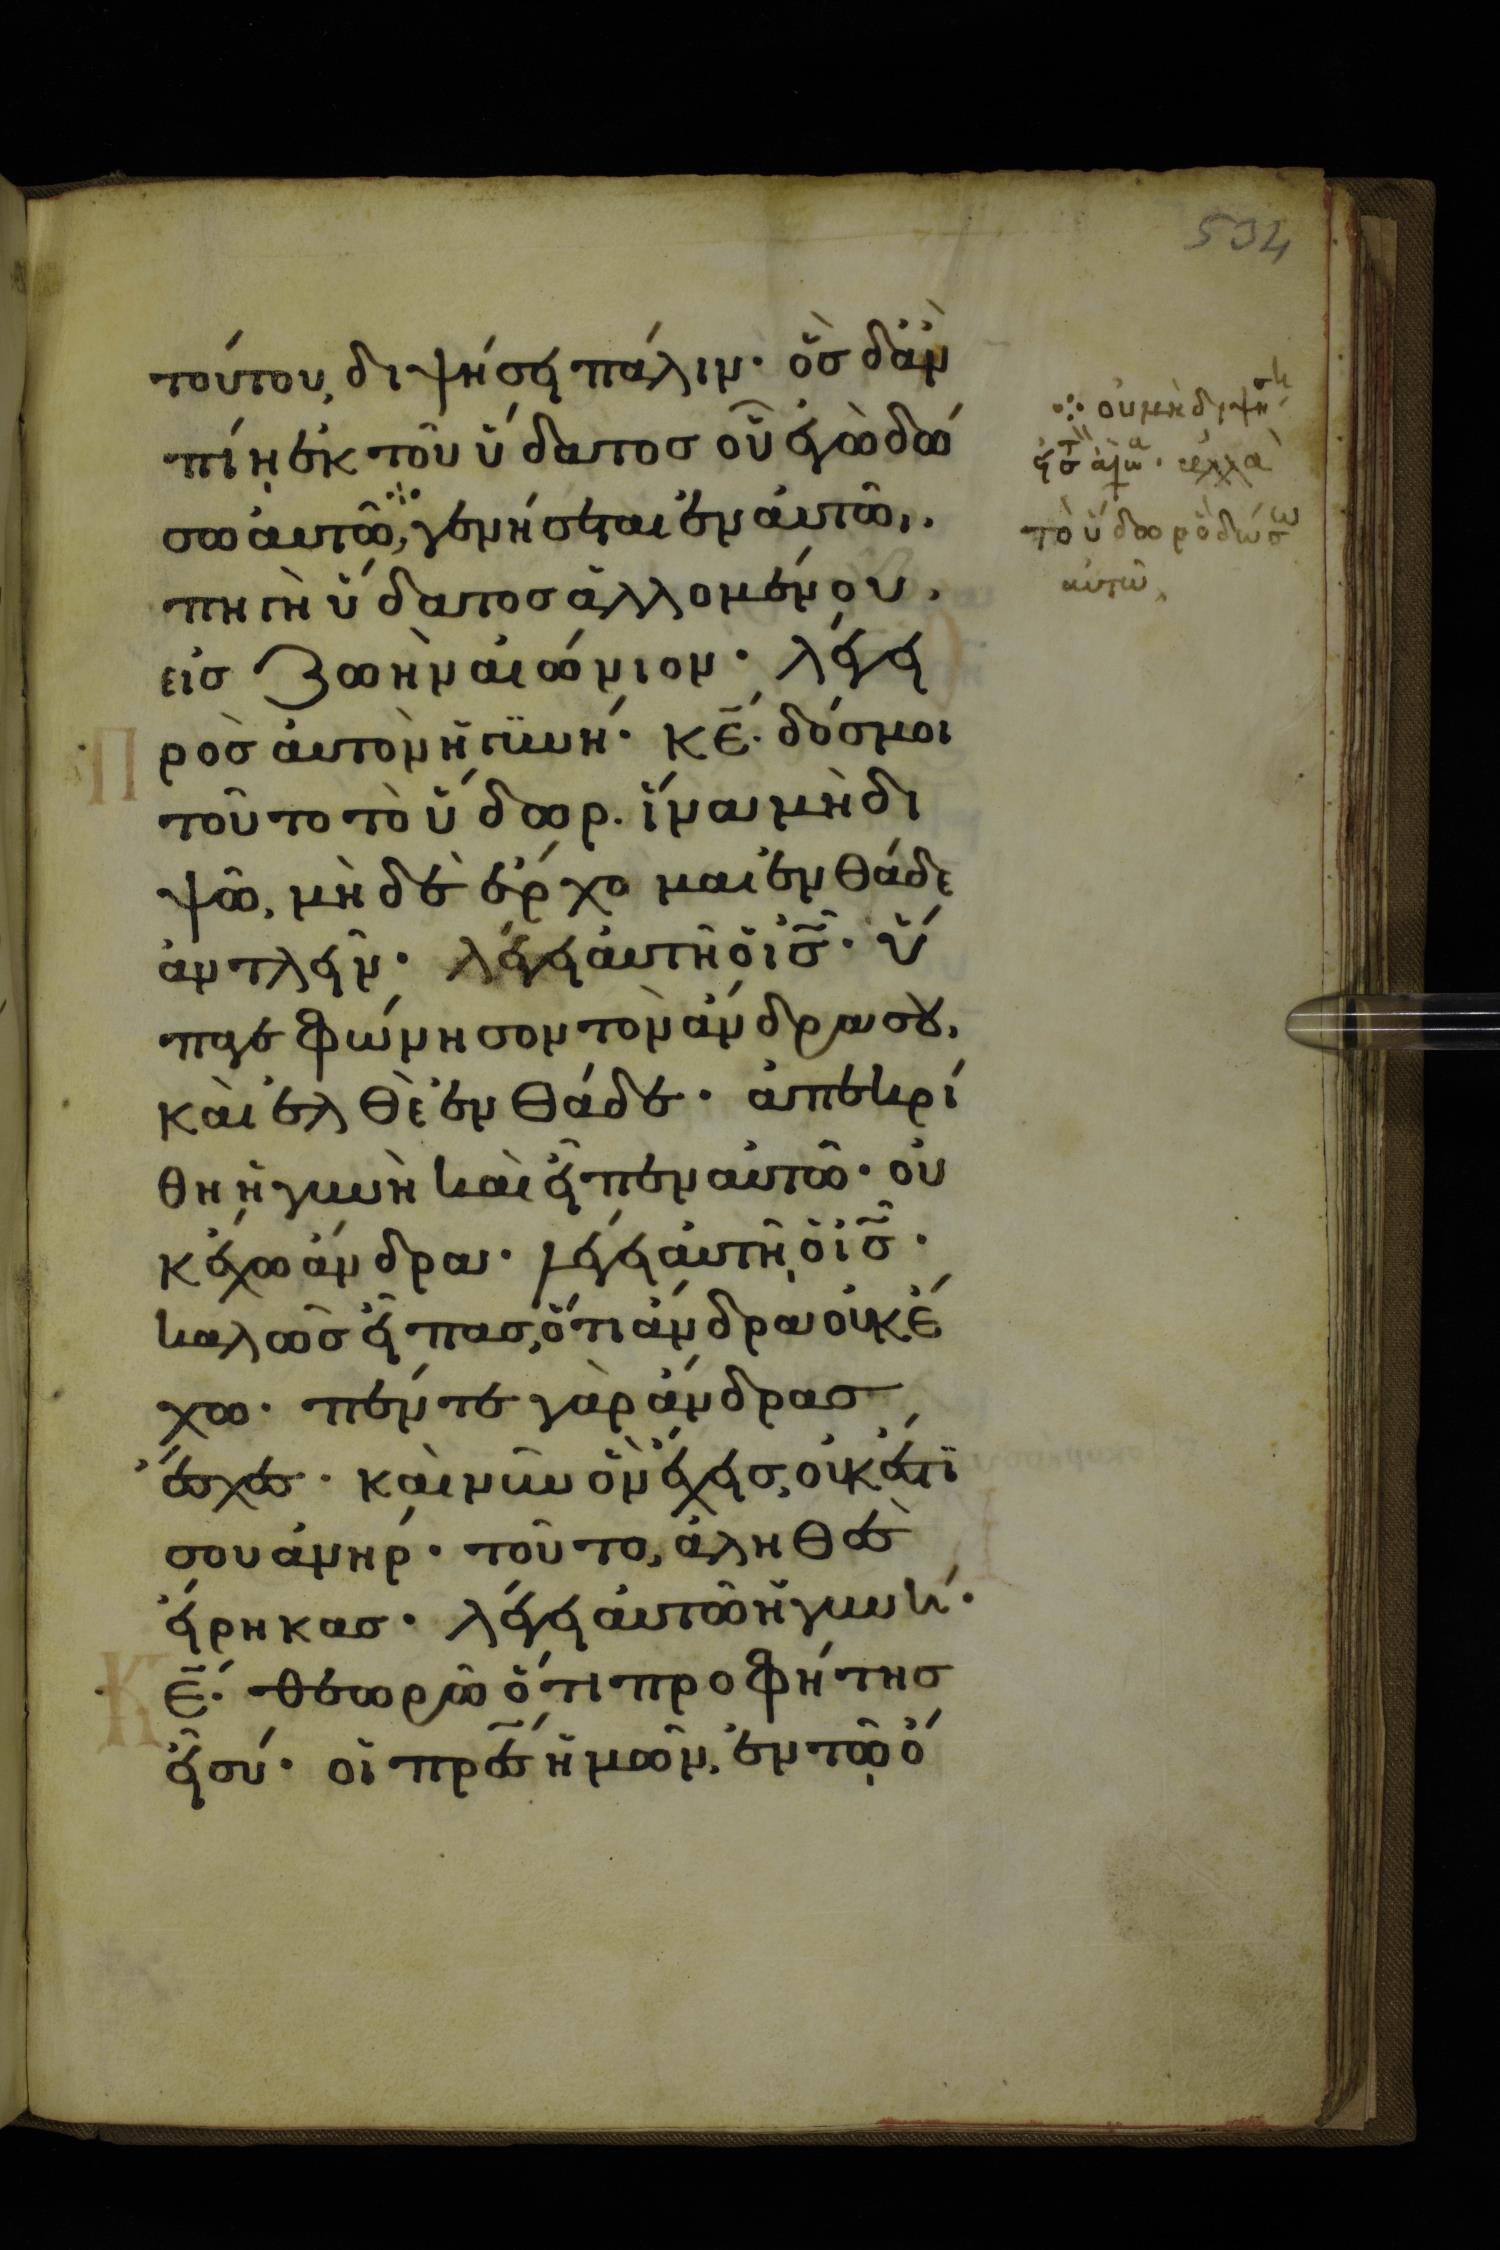 534
τούτου, διψήσει πάλιν· ὃς δἂν
πίῃ ἐκ τοῦ ὕδατος οὗ ἐγὼ δώ
σω αὐτῶ, γενήσεται ἐν αὐτῶ,.
πηγὴ ὕδατος ἁλλομένου.
εἰς ζωὴν αἰώνιον· λέγει
Πρὸς αὐτὸν ἡ γυνή· κε̄. δός μοι
τοῦτο τὸ ὕδωρ. ἵνα μὴ δι
ψῶ, μὴ δὲ ἔρχομαι ἐνθάδε
ἀντλεῖν· λέγει αὐτῆ ὁ ις̄· ὕ
παγε φώνησον τὸν ἄνδρα σȣ,
καὶ ἐλθὲ ἐνθάδε· ἀπεκρί
θη ἡ γυνὴ καὶ εἶπεν αὐτῶ· οὐ
κ ἔχω ἄνδρα· λέγει αὐτῆ, ὁ ις̄·
καλῶς εἶπας, ὅτι ἄνδρα οὐκ ἔ
χω· πέντε γὰρ ἄνδρας
ἔσχες· καὶ νῦν ὃν ἔχεις, οὐκ ἔστι
σου ἀνήρ· τοῦτο, ἀληθὲς
εἴρηκας· λέγει αὐτῶ ἡ γυνή·
Κε̄· θεωρῶ ὅτι προφήτης
εἶ σύ· οἱ πρ̄ες ἡμῶν, ἐν τῶ ὄ
∴ οὐ μὴ διψήση
εἰς τὸν αἰῶνα· ἀλλὰ
τὸ ὕδωρ ὃ δώσω
αὐτῶ,